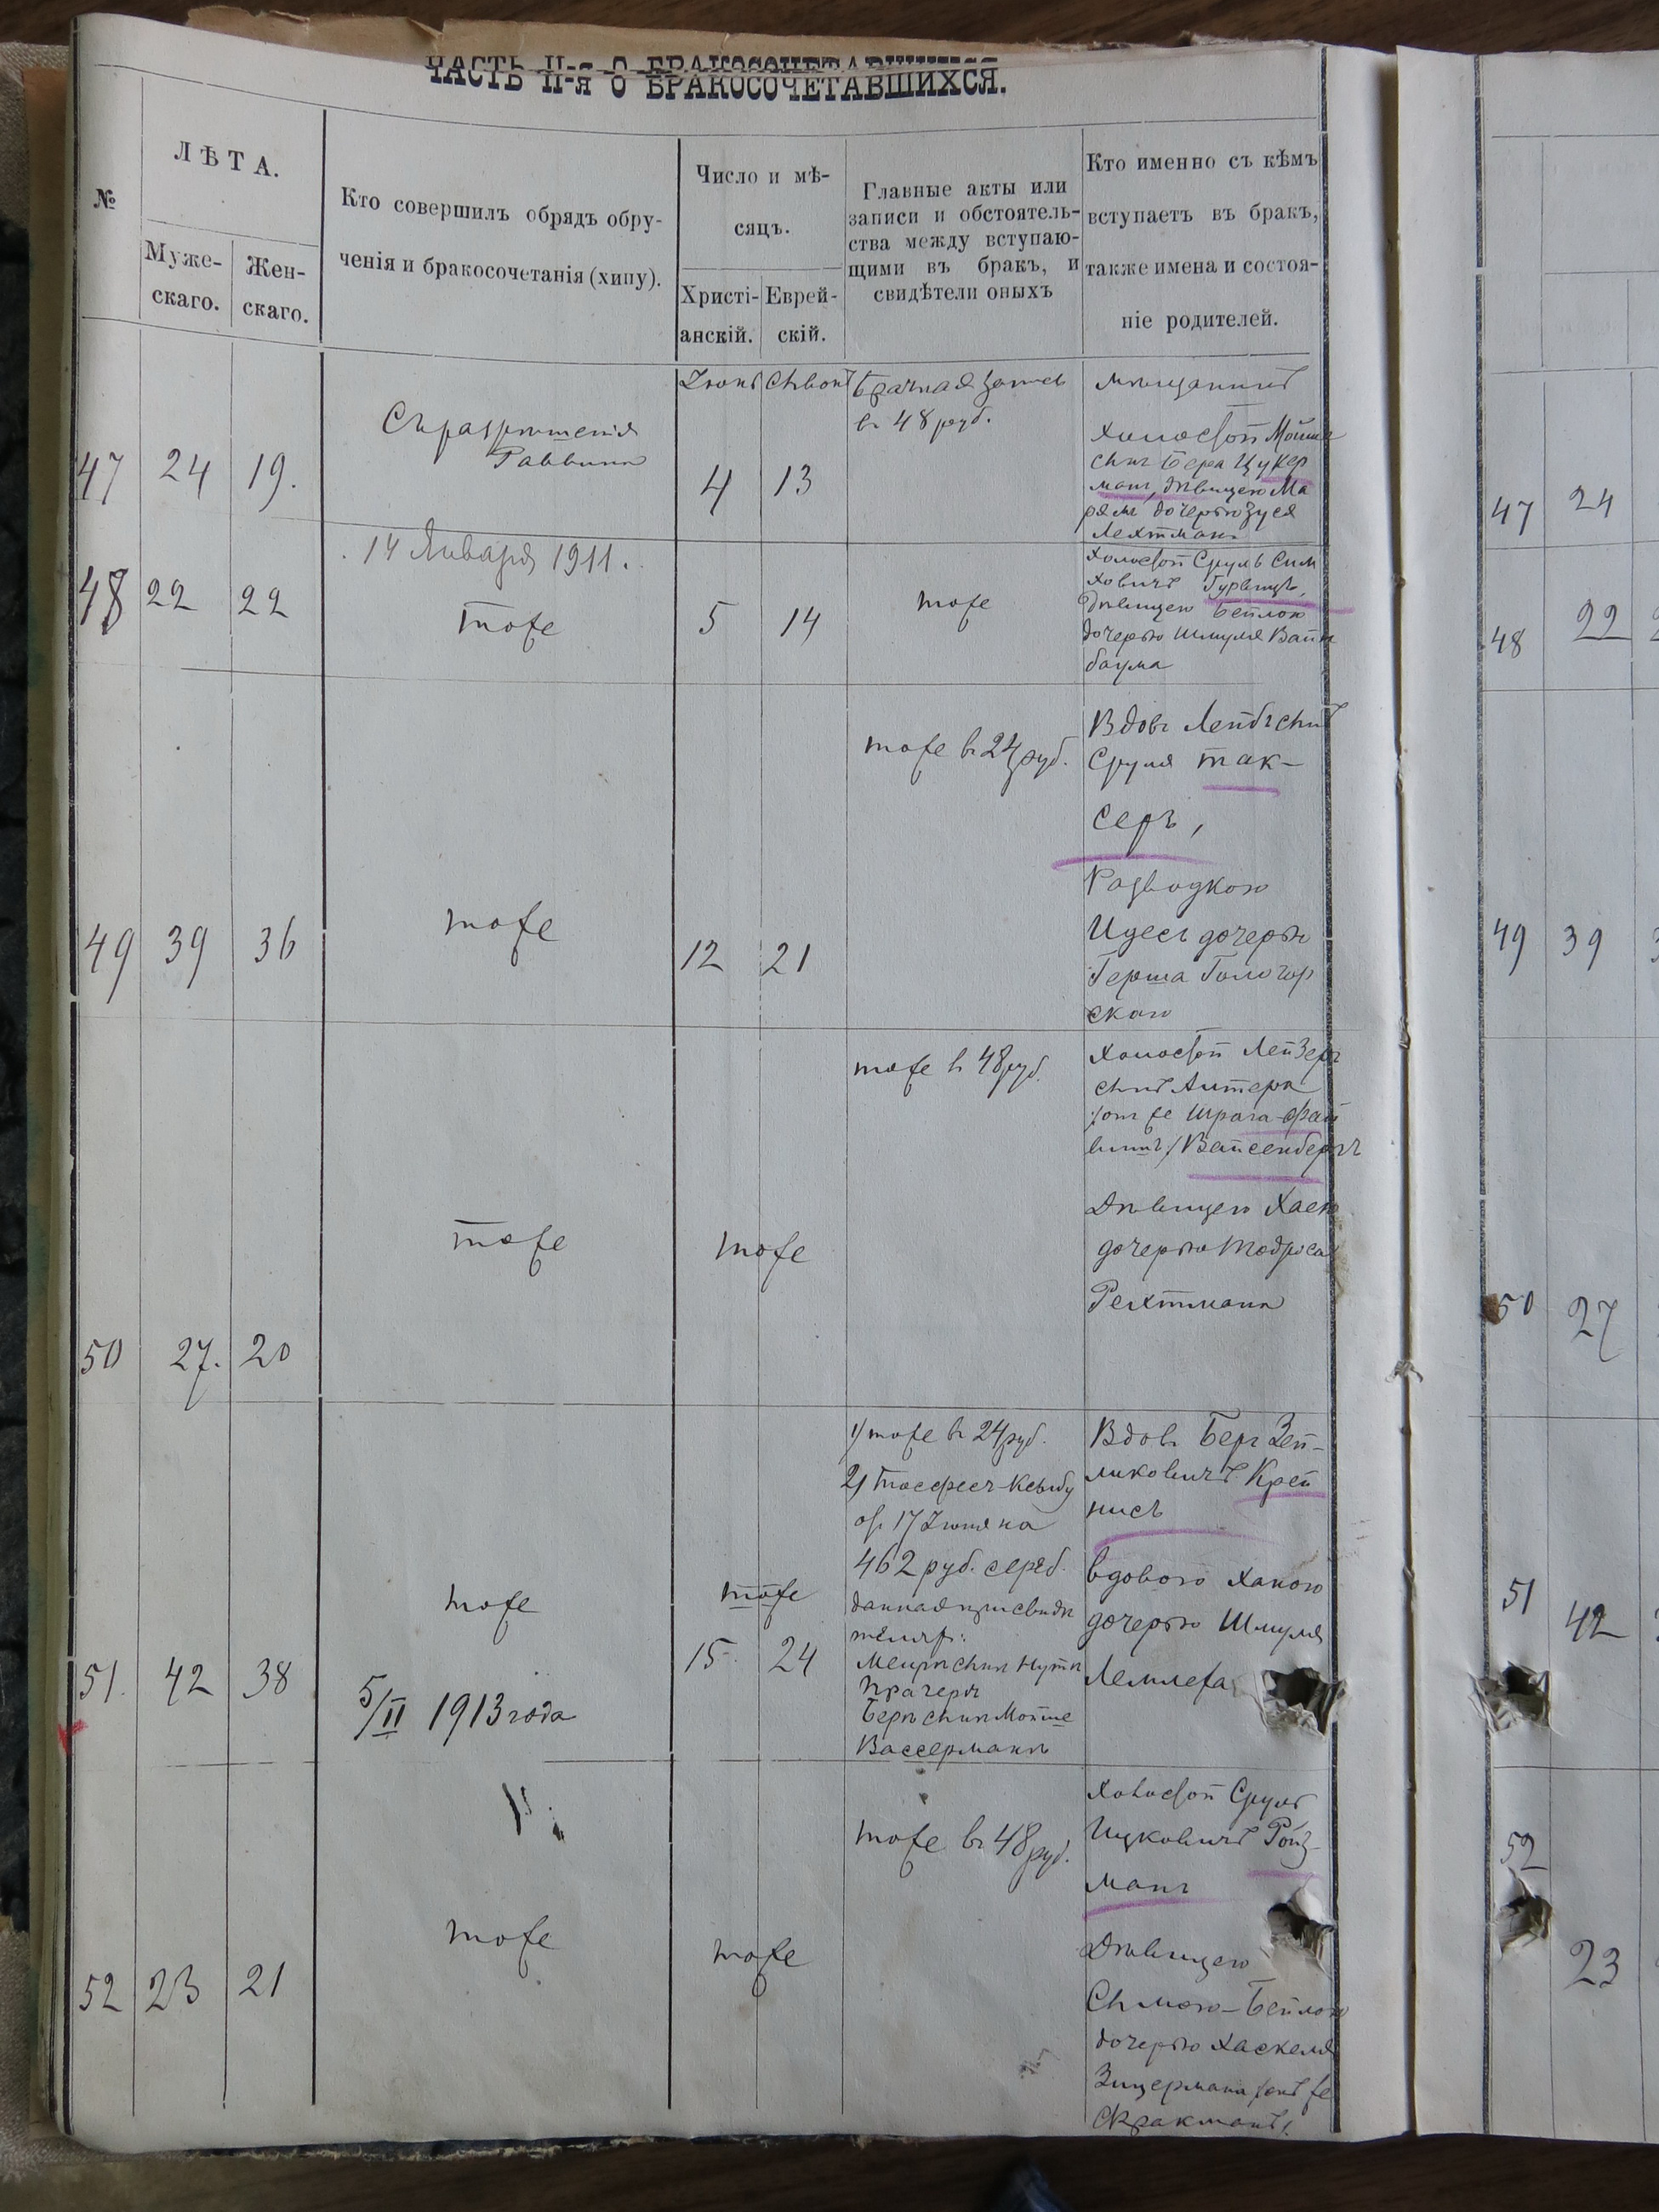 ЧАСТЬ II-я О БРАКОСОЧЕТАВШИХСЯ.
№
ЛѢТА.
Муже-
скаго.
Жен-
скаго.
Кто совершилъ обрядъ обру-
ченія и бракосочетанія (хипу).
Число и мѣ-
сяцъ.
Христі-
анскій.
Еврей-
скій.
Главные акты или
записи и обстоятель-
ства между вступаю-
щими въ бракъ, и
свидѣтели оныхъ
Кто именно съ кѣмъ
вступаетъ въ бракъ,
также имена и состоя-
ніе родителей.
47
24
19.
Съ разрѣшенія
Раввина
Іюнь
4
13
Брачная запись
въ 48 руб.
мѣщанинъ
холостой Мойше
сынъ Бера Цукер
манъ, дѣвицею Ма
рямъ дочерью Зуся
Лехтмана
48
22
22
14 Января 1911.
тоже
5
14
тоже
Холостой Сруль Сим
ховичъ Гурвицъ,
дѣвицею Бейлою
дочерью Шмуля Вайн
баума
49
39
36
тоже
12
21
тоже въ 24 руб.
Вдовъ Лейбъ сынъ
Сруля Так-
серъ,
Разводкою
Идесъ дочерью
Герша Гологор
скаго
50
27.
20
тоже
тоже
тоже въ 48 руб.
Холостой Лейзеръ
сынъ Антера
/онъ же Шрага-Фай
вишъ/ Вайсенбергъ
Дѣвицею Хаею
дочерью Тодроса
Рехтмана
51.
42
38
тоже
5/II 1913 года
тоже
15.
24
1/ тоже въ 24 руб.
2/ Тосфес-Ксыбу
отъ 17 Іюня на
462 руб. сереб.
данная при свидѣ
теляхъ:
Меиръ сынъ Нуты
Прачеръ
Беръ сынъ Мойше
Вассерманъ
Вдовъ Беръ Зей-
ликовичъ Крей
нисъ
вдовою Ханою
дочерью Шмуля
52
23
21
тоже
тоже
тоже въ 48 руб.
Холостой Сруль
Ицковичъ Ройз-
манъ
Дѣвицею
Симою-Бейлою
дочерью Хаскеля
Зицермана /онъ же
47
24
48
22
49
39
50
27
51
42
52
23